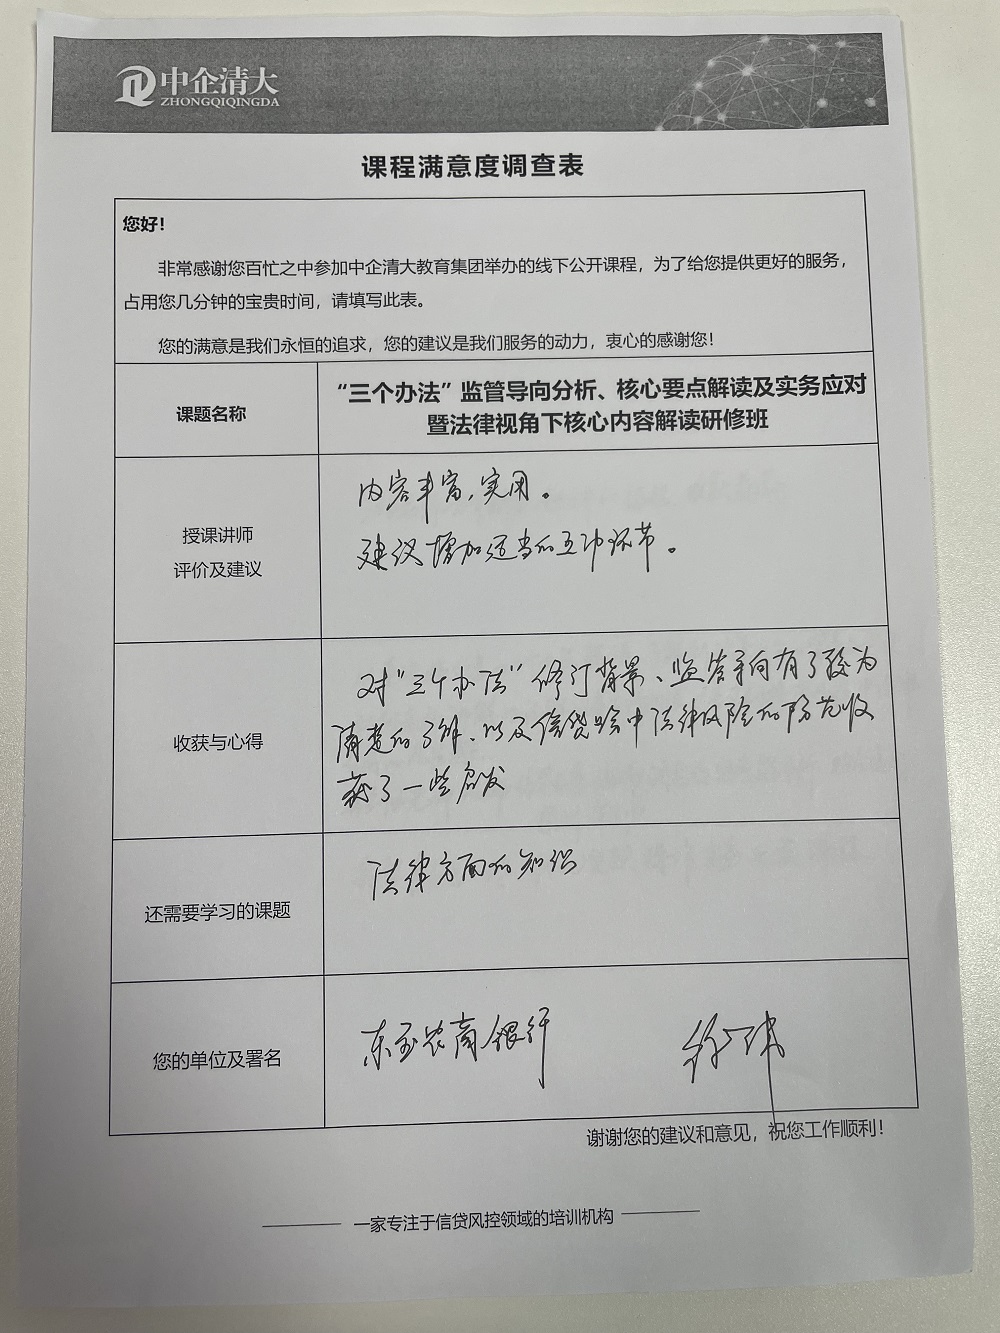 中企清大
ZHONGQIQINGDA
课程满意度调查表
您好！
非常感谢您百忙之中参加中企清大教育集团举办的线下公开课程，为了给您提供更好的服务，
占用您几分钟的宝贵时间，请填写此表。
您的满意是我们永恒的追求，您的建议是我们服务的动力，衷心的感谢您！
课题名称
“三个办法”监管导向分析、核心要点解读及实务应对
暨法律视角下核心内容解读研修班
授课讲师
评价及建议
内容丰富，实用。
建议增加适当的互动环节。
收获与心得
对“三个办法”修订背景、监管导向有了较为
清楚的了解、以及信贷中法律风险的防范收
获了一些启发
还需要学习的课题
法律方面的知识
您的单位及署名
东至农商银行
谢谢您的建议和意见，祝您工作顺利！
一家专注于信贷风控领域的培训机构